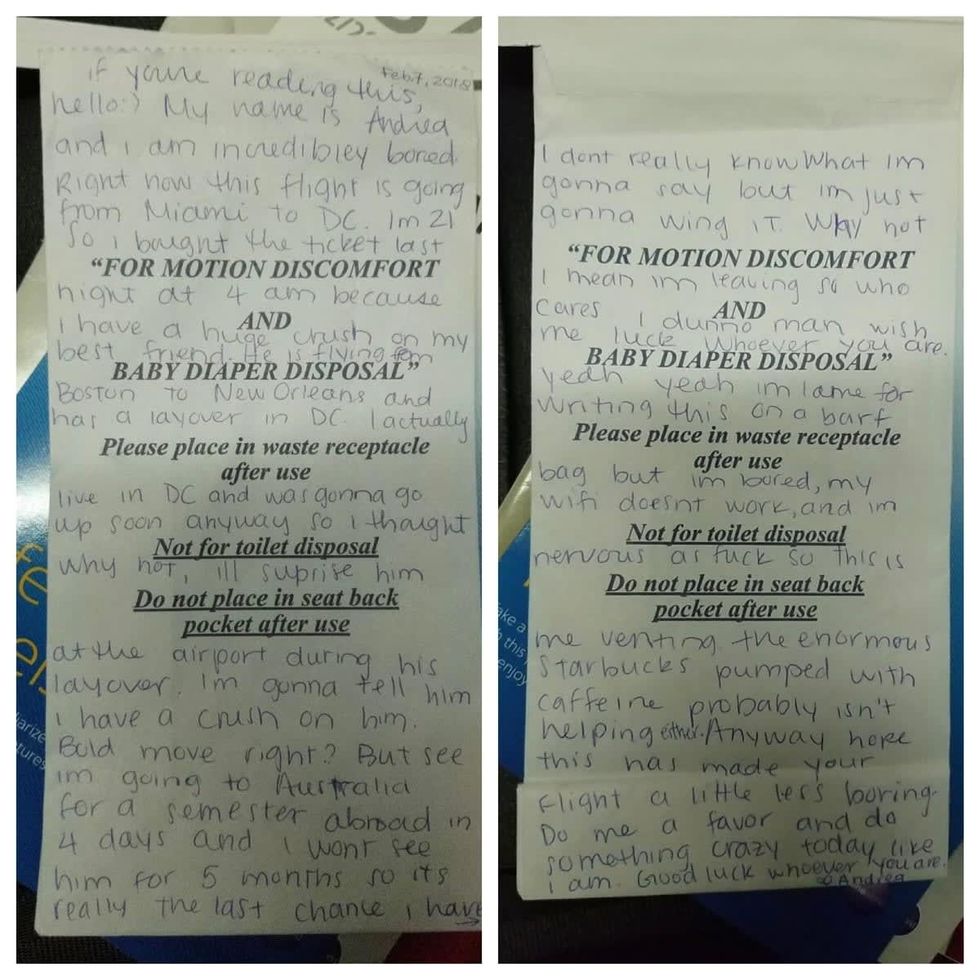 Feb. 7, 2018
if youre reading this,
hello:) My name is Andrea
and i am incredibley bored.
Right now this flight is going
from Miami to DC. Im 21
So i bought the ticket last
"FOR MOTION DISCOMFORT
night at 4 am because
AND
I have a huge crush on my
best friend. He is flying from
BABY DIAPER DISPOSAL"
Boston to New Orleans and
has a layover in DC. I actually
Please place in waste receptacle
after use
live in DC and was gonna go
up soon anyway so i thought
Not for toilet disposal
why not, ill suprise him
Do not place in seat back
pocket after use
at the airport during his
layover. Im gonna tell him
i have a crush on him.
Bold move right? But see
im going to Australia
for a semester abroad in
4 days and i wont see
him for 5 months so its
really the last chance i have
→
I dont really know what im
gonna say but im just
gonna wing it. Why not
"FOR MOTION DISCOMFORT
I mean im leaving so who
AND
cares I dunno man wish
me luck whoever you are.
BABY DIAPER DISPOSAL"
yeah yeah im lame for
writing this on a barf
Please place in waste receptacle
after use
bag but im bored, my
wifi doesnt work, and im
Not for toilet disposal
nervous as fuck so this is
Do not place in seat back
pocket after use
me venting. the enormous
Starbucks pumped with
caffeine probably isn't
helping either. Anyway hope
this has made your
flight a little less boring.
Do me a favor and do
something crazy today like
i am. Good luck whoever you are.
Andrea